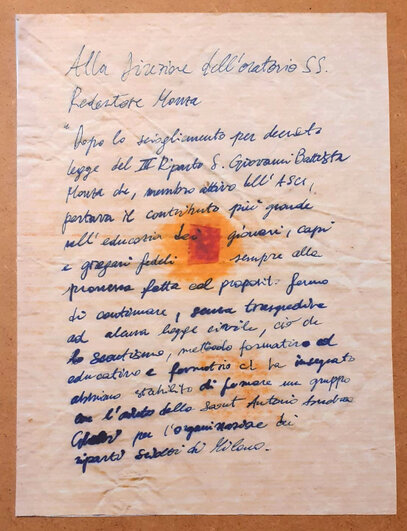 Alla Direzione dell'oratorio SS.
Redentore Monza
"Dopo lo scioglimento per decreto
legge del III Riparto S. Giovanni Battista
Monza che, membro attivo dell'ASCI,
portava il contributo più grande
nell'educazio dei giovani, capi
e gregari fedeli sempre alla
promessa fatta col proposit. fermo
di continuare, senza trasgredire
ad alcuna legge civile, ciò che
lo scautismo, metodo formativo ed
educativo e formativo ci ha insegnato
abbiamo stabilito di formare un gruppo
con l'aiuto dello Scout Antonio Andrea
per l'organizzazione dei
riparti sciolti di Milano.